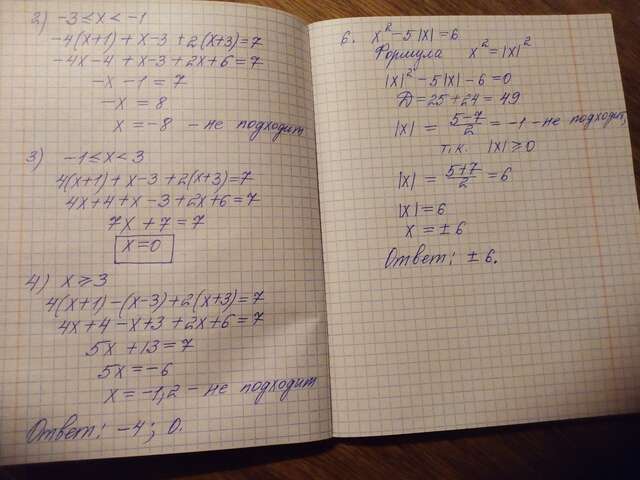 2) -3 ≤ x < -1
-4(x+1) + x-3 + 2(x+3) = 7
-4x-4 + x-3 + 2x+6 = 7
-x - 1 = 7
-x = 8
x = -8 - не подходит
3) -1 ≤ x < 3
4(x+1) + x-3 + 2(x+3) = 7
4x+4 + x-3 + 2x+6 = 7
7x + 7 = 7
x = 0
4) x ≥ 3
4(x+1) - (x-3) + 2(x+3) = 7
4x+4 - x+3 + 2x+6 = 7
5x + 13 = 7
5x = -6
x = -1,2 - не подходит
Ответ: -4; 0.
6. x² - 5|x| = 6
Формула x² = |x|²
|x|² - 5|x| - 6 = 0
Д = 25 + 24 = 49
|x| = (5-7)/2 = -1 - не подходит,
т.к. |x| ≥ 0
|x| = (5+7)/2 = 6
|x| = 6
x = ± 6
Ответ: ± 6.